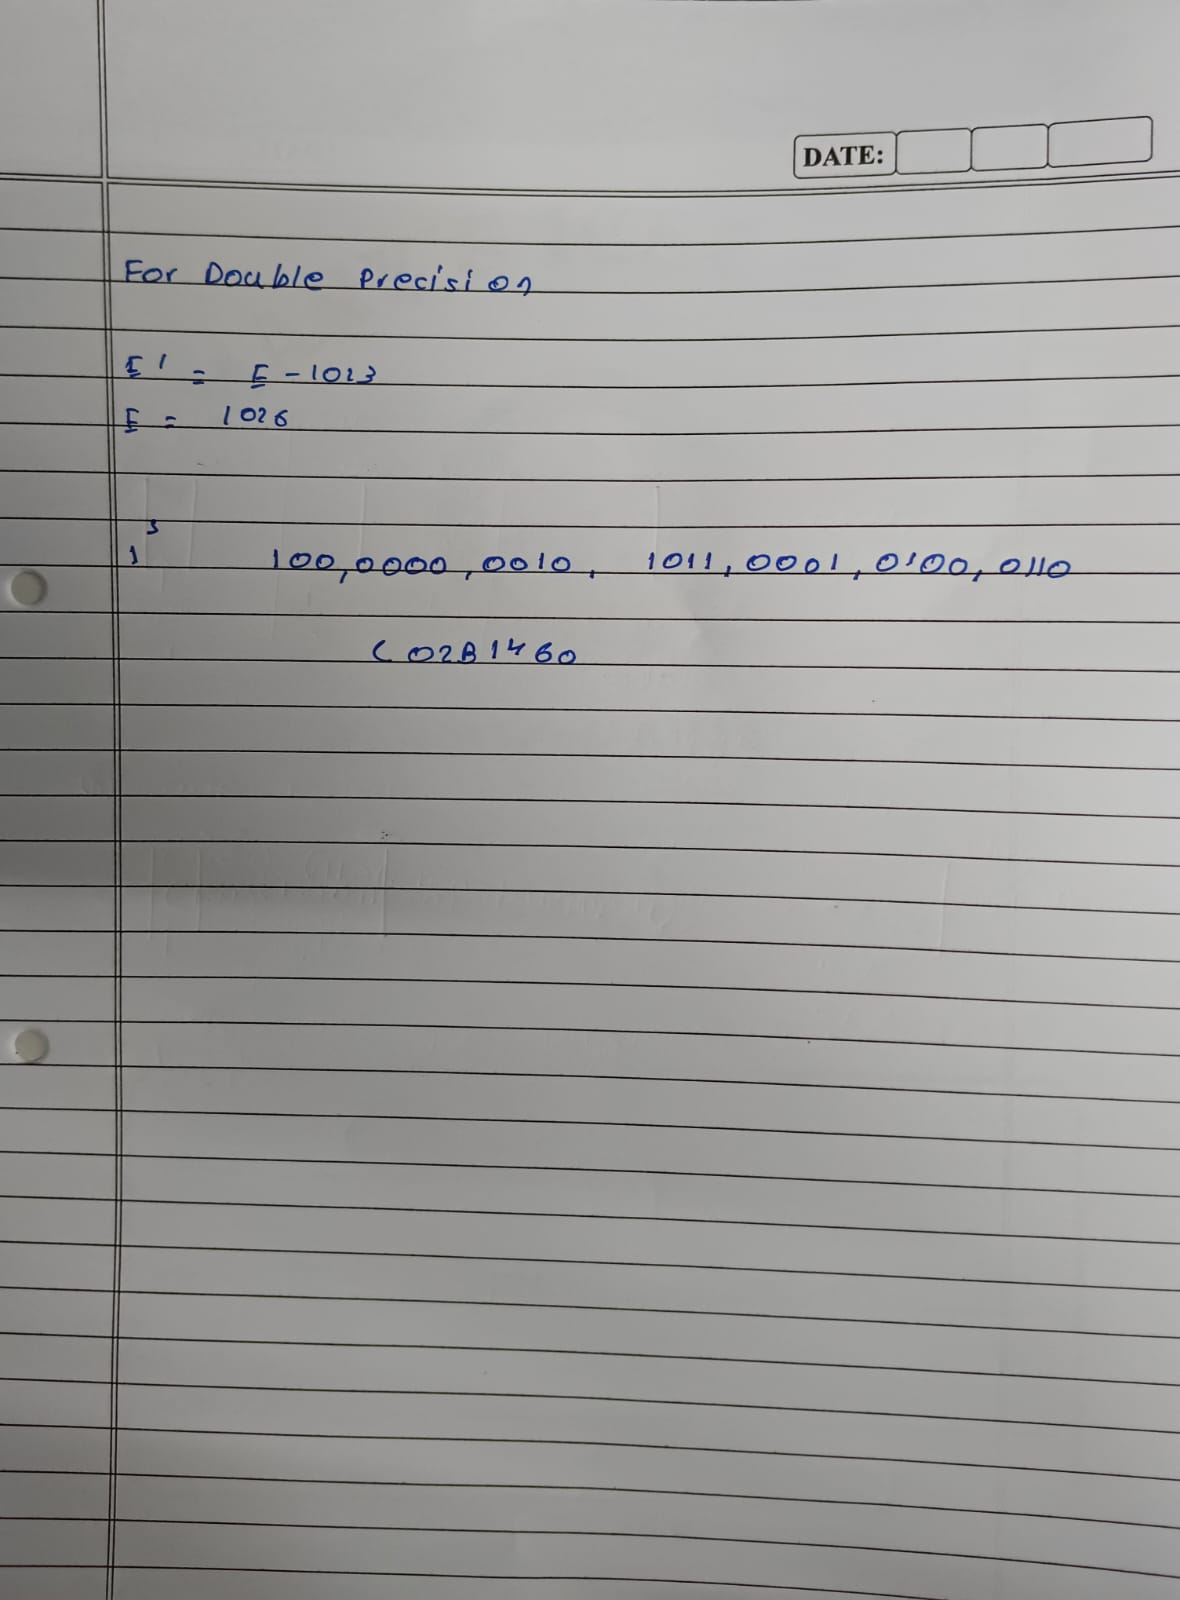 DATE:
For Double Precision
E' = E - 1023
E = 1026
S
1 100,0000,0010, 1011,0001,0100,0110
C02B1460